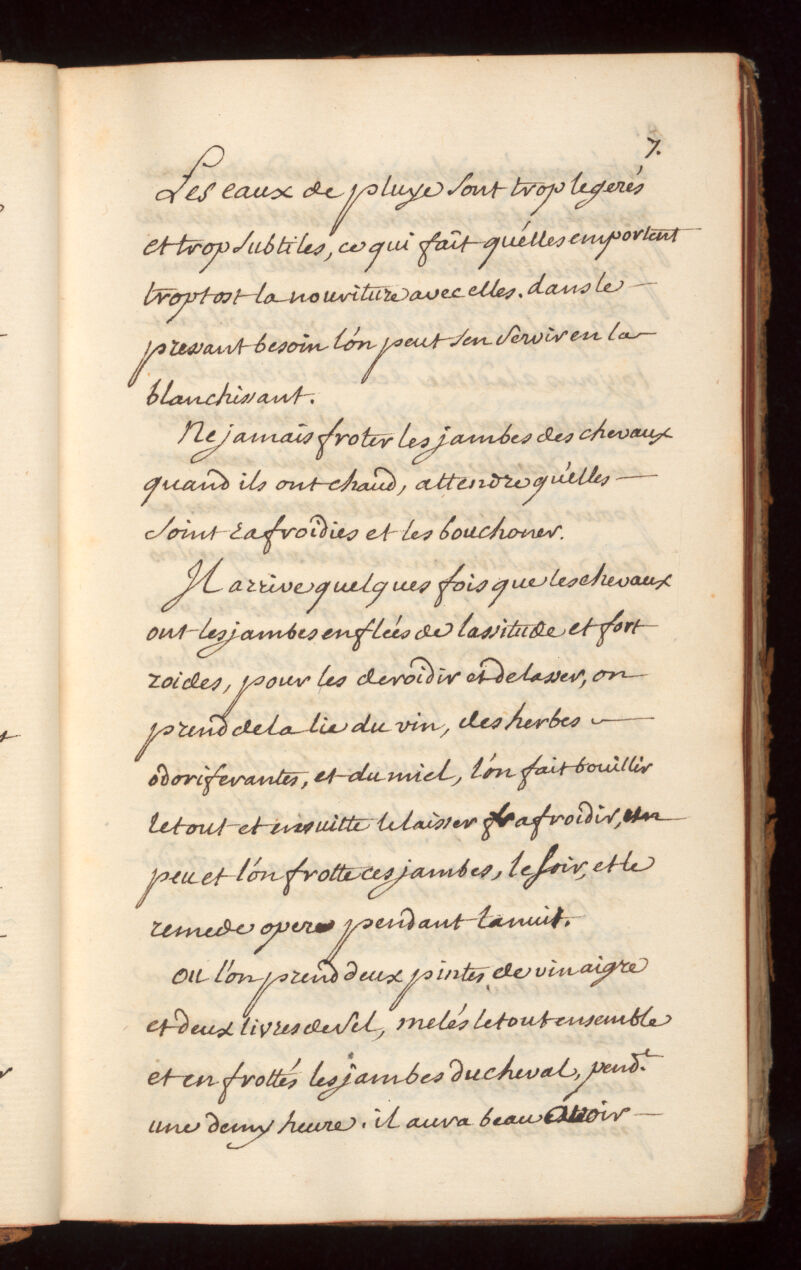 7.
Les eaux de pluye sont trop legerés
et trop subtiles, ce qui faît qu'elles emportent
trop tost la nouriture avec elles. dans le
pressant besoin l'on peut s'en servir en la
blanchissant.
Ne jamais froter les jambes des chevaux
quand ils ont chaud, attendre qu'elles
soint rafroîdies et les bouchoner.
Il arrive quelques fois que les chevaux
ont les jambes enflées de lassitude et fort
roides, pour les deroîdir et delasser, on
prend de la lie du vin, des herbes
odoriferantes, et du miel, l'on fait bouillir
le tout et ensuitte le laisser rafroidir, un
peu et l'on frotte ces jambes, le soir, et le
remede opere pendant la nuit.
Ou l'on prend deux pintes de vinaigre
et deux livres de sel, melés le tout ensemble
et en frottés les jambes du cheval, pend.t
une demy heure. il aura beau avoir